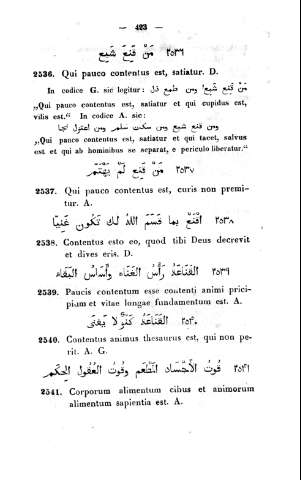 — 423 —
٢٥٣٦ مَنْ قَنَعَ شَبِعَ
2536. Qui pauco contentus est, satiatur. D.
In codice G. sic legitur: من قنع شبع ومن طمع ذل
„Qui pauco contentus est, satiatur et qui cupidus est,
vilis est.“ In codice A. sic:
ومن قنع شبع ومن سكت سلم ومن اعتزل نجا
„Qui pauco contentus est, satiatur et qui tacet, salvus
est et qui ab hominibus se separat, e periculo liberatur.“
٢٥٣٧ مَنْ قَنِعَ لَمْ يَهْتَمّ
2537. Qui pauco contentus est, curis non premi-
tur. A.
٢٥٣٨ اقْنَعْ بِمَا قَسَمَ اللهُ لَكَ تَكُونُ غَنِيًّا
2538. Contentus esto eo, quod tibi Deus decrevit
et dives eris. D.
٢٥٣٩ القَنَاعَةُ رَأْسُ الغَنَاءِ وأَسَاسُ البَقَاءِ
2539. Paucis contentum esse contenti animi princi-
pium et vitae longae fundamentum est. A.
٢٥٤٠ القَنَاعَةُ كَنْزٌ لا يَفْنَى
2540. Contentus animus thesaurus est, qui non pe-
rit. A. G.
٢٥٤١ قُوتُ الأَجْسَادِ الطَّعَم وقُوتُ العُقُولِ الحِكَم
2541. Corporum alimentum cibus et animorum
alimentum sapientia est. A.